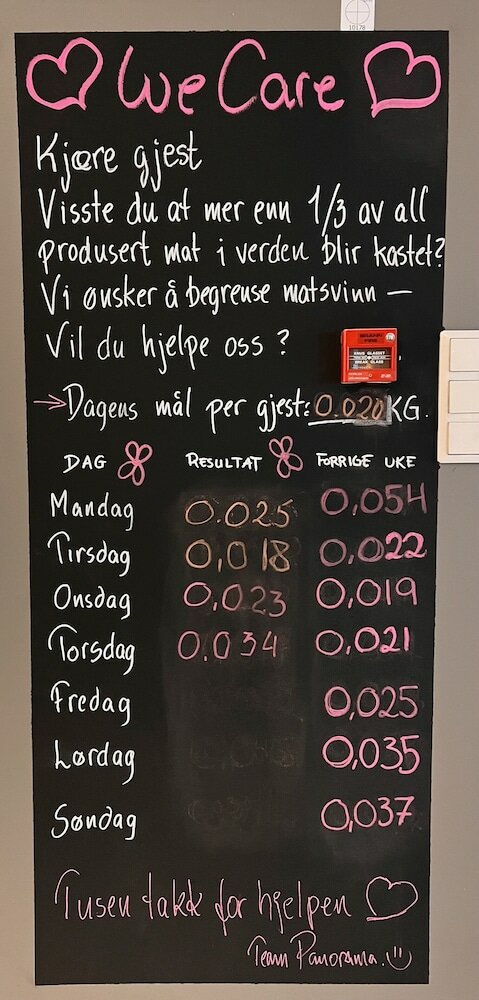 10178
We Care
Kjære gjest
Visste du at mer enn 1/3 av all
produsert mat i verden blir kastet?
Vi ønsker å begrense matsvinn –
Vil du hjelpe oss ?
BRANN
FIRE
KNUS GLASSET
BREAK GLASS
→ Dagens mål per gjest: 0.020 KG.
DAG RESULTAT FORRIGE UKE
Mandag 0.025 0,054
Tirsdag 0,018 0,022
Onsdag 0,023 0,019
Torsdag 0.034 0,021
Fredag 0,025
Lørdag 0,035
Søndag 0,037
Tusen takk for hjelpen
Team Panorama.